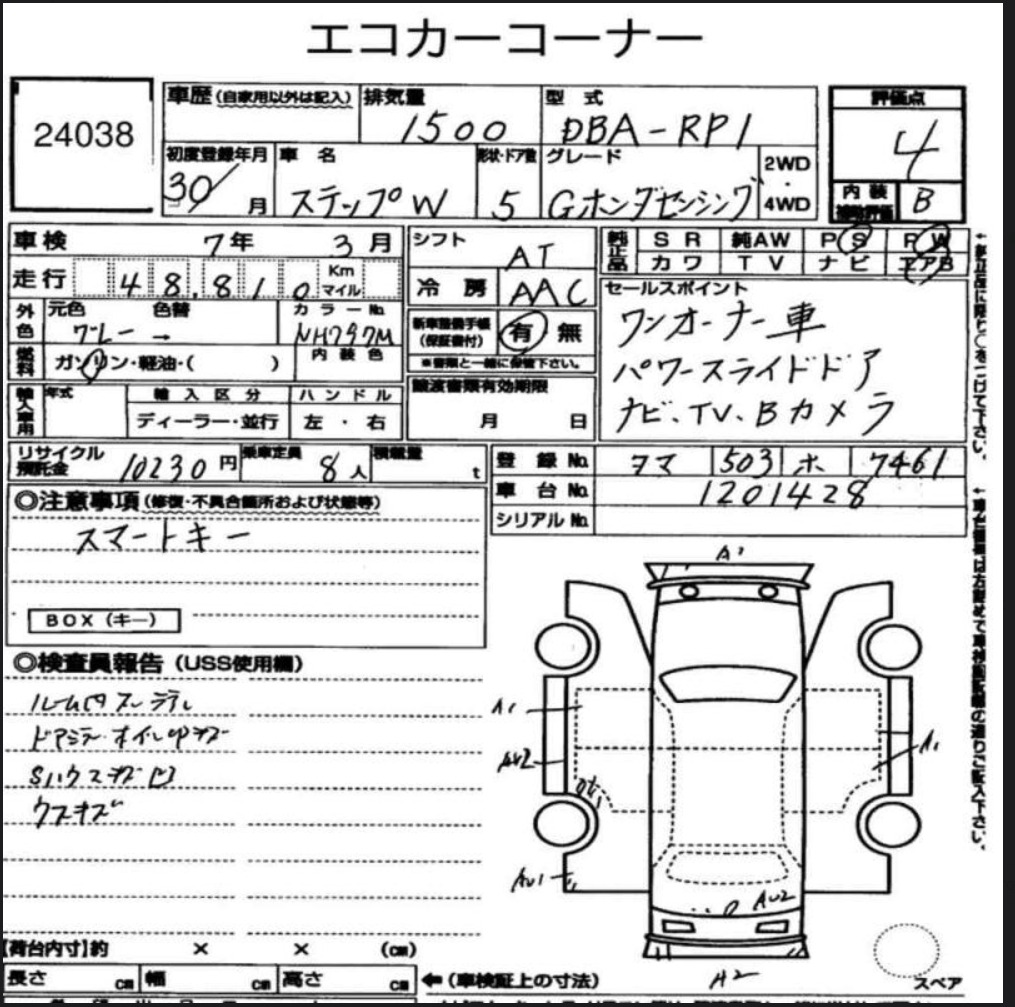 エコカーコーナー
24038
車歴 (自家用以外は記入)
排気量
1500
型式
DBA-RP1
評価点
4
初度登録年月
30/ 月
車名
ステップW
形状・ドア数
5
グレード
Gホンダセンシング
2WD
・
4WD
内装
補助評価
B
車検 7年 3月
シフト
AT
純正品
SR 純AW PS PW
カワ TV ナビ エアB
走行 48,810 Km マイル
冷房
AAC
外色
元色 色替
グレー →
カラーNo.
NH797M
新車整備手帳
(保証書付)
有 無
※書類と一緒に保管下さい。
セールスポイント
ワンオーナー車
パワースライドドア
ナビ、TV、Bカメラ
燃料
ガソリン・軽油・( )
内装色
輸入車用
年式
輸入区分
ディーラー・並行
ハンドル
左・右
譲渡書類有効期限
月 日
リサイクル
預託金
10230円
乗車定員
8人
積載量
t
登録No.
タマ 503 ホ 7461
車台No.
1201428
シリアルNo.
◎注意事項 (修復・不具合箇所および状態等)
スマートキー
BOX (キー)
◎検査員報告 (USS使用欄)
ルーム内
ウスキズ
A1
A1
A1
AU2
AU1
AU2
A2
スペア
【荷台内寸】約 × × (cm)
長さ cm 幅 cm 高さ cm
← (車検証上の寸法)